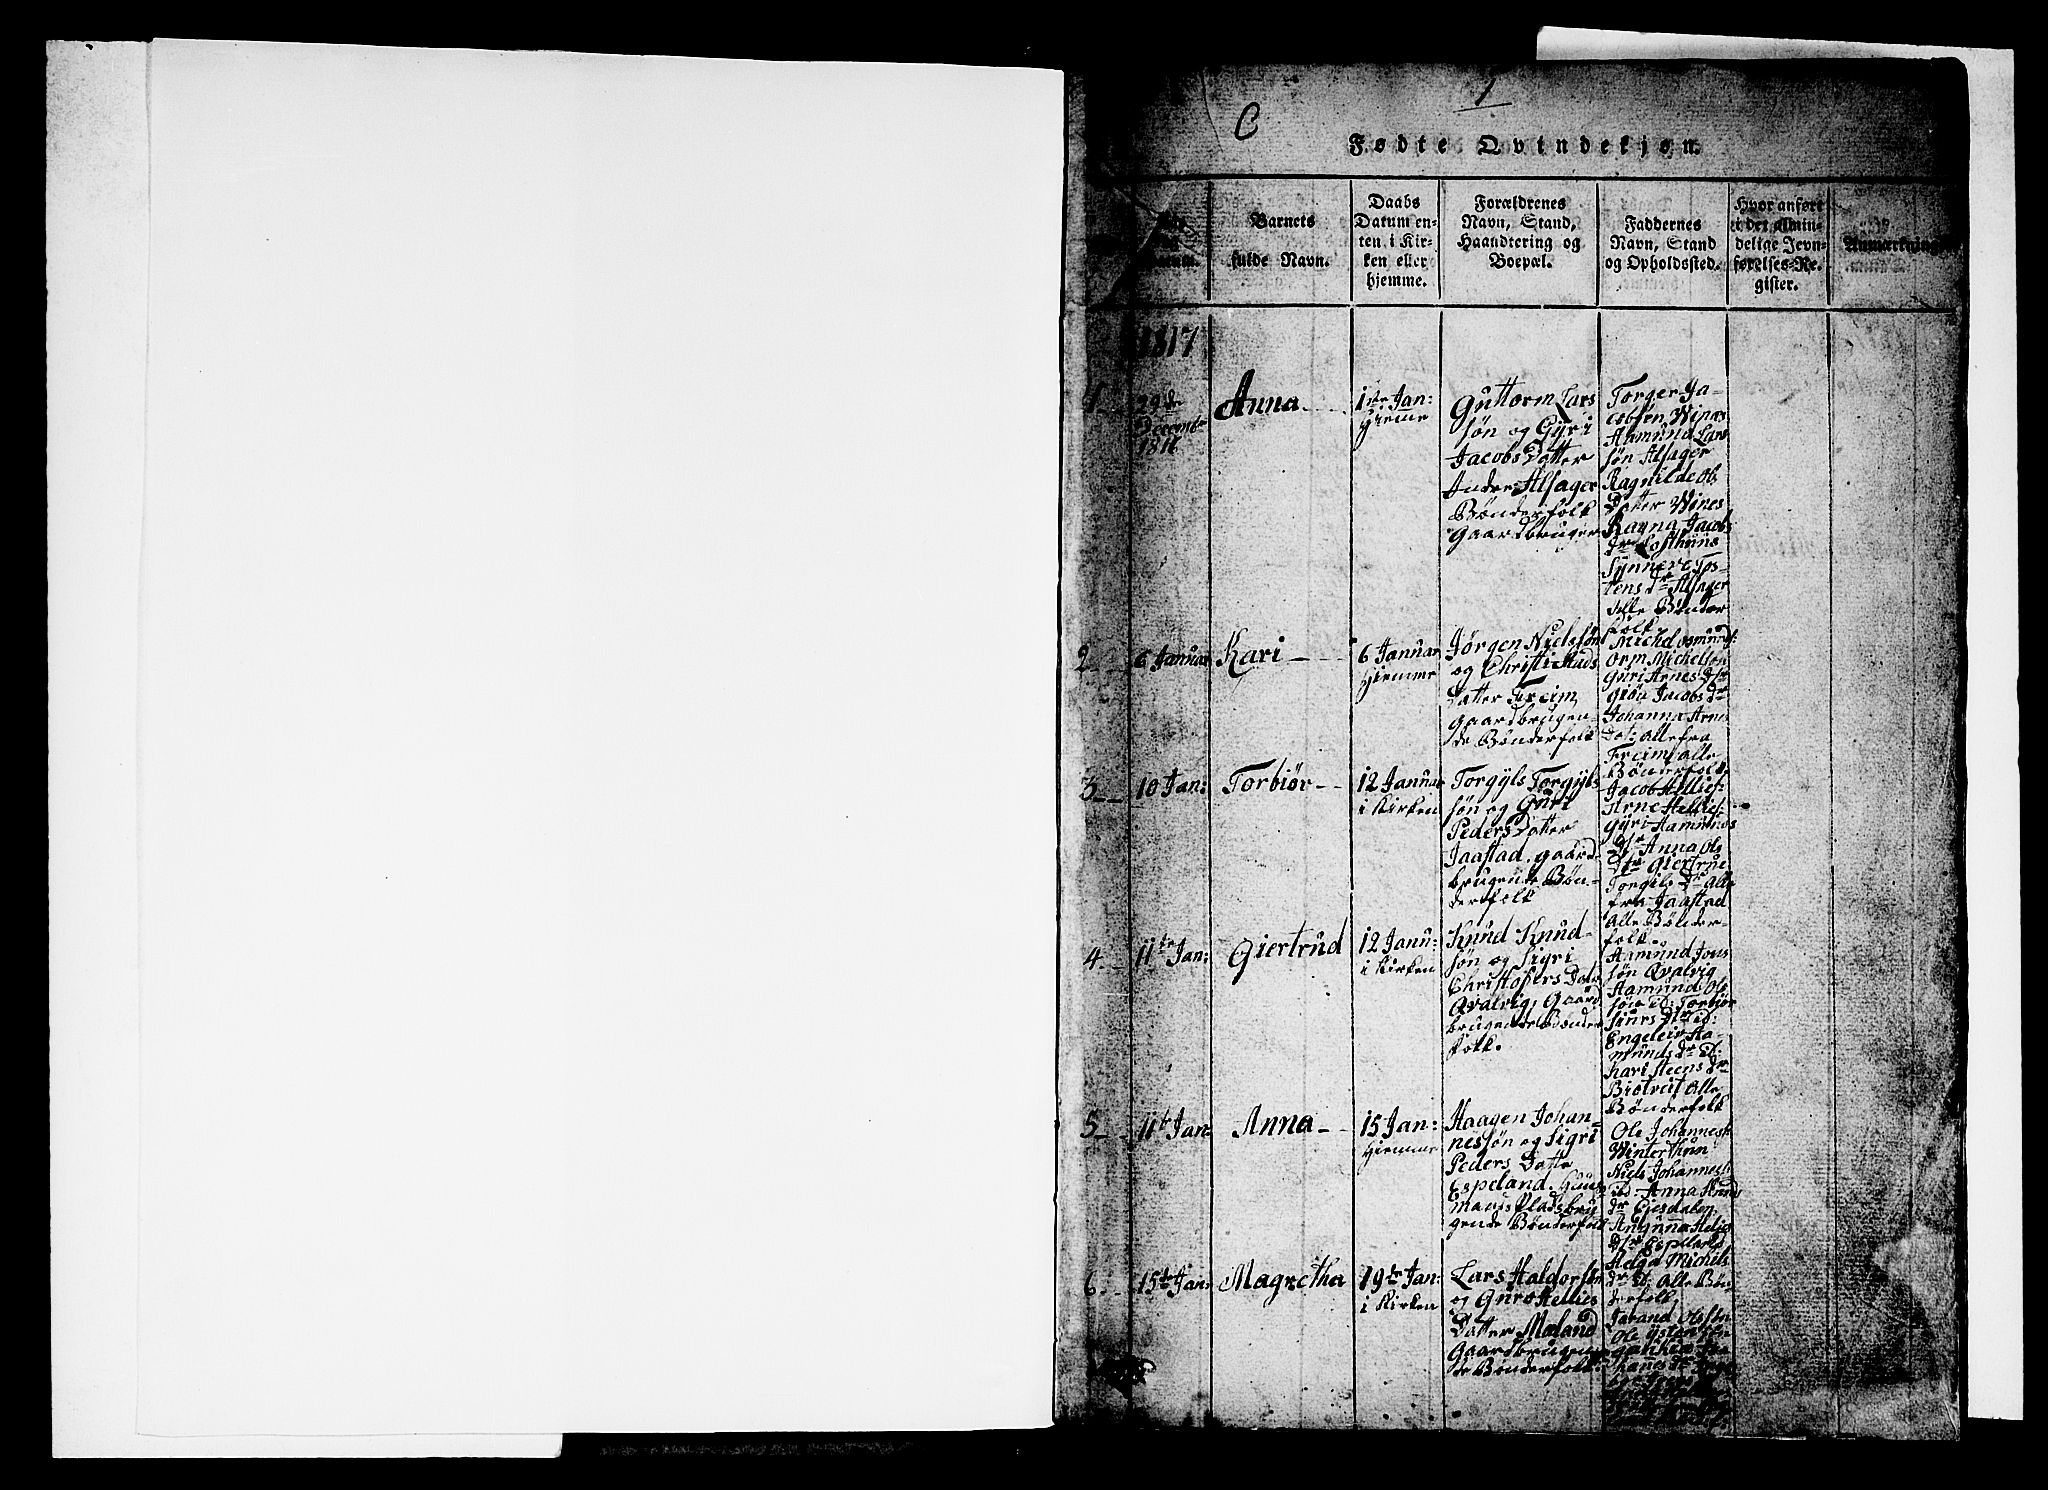 1
C
Fødte Qvindekjøn.
Barnets
fulde Navn.
Daabs
Datum en-
ten i Kir-
ken eller
hjemme.
Forældrenes
Navn, Stand,
Haandtering og
Boepæl.
Faddernes
Navn, Stand
og Opholdssted.
Hvor anført
i det Almin-
delige Jevn-
førelses-Re-
gister.
Anmærkning
1817
1
29de
Decembr
1816
Anna
1ste Jan:
Hieme
Guttorm Lars
søn og Gyri
Jacobs Datter
Indre Alsager
Bønderfolk
Gaardbruger
Torger Ja-
cobsen Winæs
Aamund Lars
søn Alsager
Ragnilde Ols
Datter Wines
Ragna Jacobs
dr Lofthuus
Synneve Tos-
tens dr Alsager
alle Bønder
folk.
2
6 Januar
Kari
6 Januar
Hiemme
Jørgen Nielssøn
og Christi Auds
Datter Freim
gaardbrugen-
de Bønderfolk
Michel osmunds:
orm Michelson
Guri Arnes Dr
giøa Jacobs dr
Johanna Arnes
Dr: alle fra
Freim alle
Bønderfolk
3
10 Jan:
Torbiør
12 Januar
i Kirken
Torgyls Torgyls
søn og Guri
Peders Datter
Jaastad. gaard
brugende Bøn-
derfolk
Jacob Hellies:
Arne Hellies:
Gyri Aamunds
Dr Anna Ols
Dr Giertrue
Torgils Dr Alle
fra Jaastad
Alle Bønder-
folk.
4
11te Jan:
Giertrud
12 Janu:
i Kirken
Knud Knud-
søn og Sigri
Christofers Datr
Qvalvig, Gaard
brugende Bønder
folk.
Aamund Jons
søn Qvalvig
Aamund Ols
søn ed: Torbiør
Siurs Dr ed:
Engeleiv Aa-
munds dr Ed:
Kari Steens dr
Biotveit Alle
Bønderfolk
5
11te Jan:
Anna
15 Jan:
Hiemme
Haagen Johan-
nessøn og Sigri
Peders Datte
Espeland. Huus-
mands Pladsbru
gende Bønderfolk
Ole Johannes:
Winterthun
Niels Johannes:
ibd: Anna Knud
dr Eiesdalen
Antunna Helies
Dr Espeland
Helga Michels
dr Ed. Alle Bøn-
derfolk.
6
15te Jan:
Magretha
19te Jan:
i Kirken
Lars Haldorsøn
og Guro Hellies
Datter Mæland
Gaardbrugen-
de Bønderfolk:
Jarand Olssen